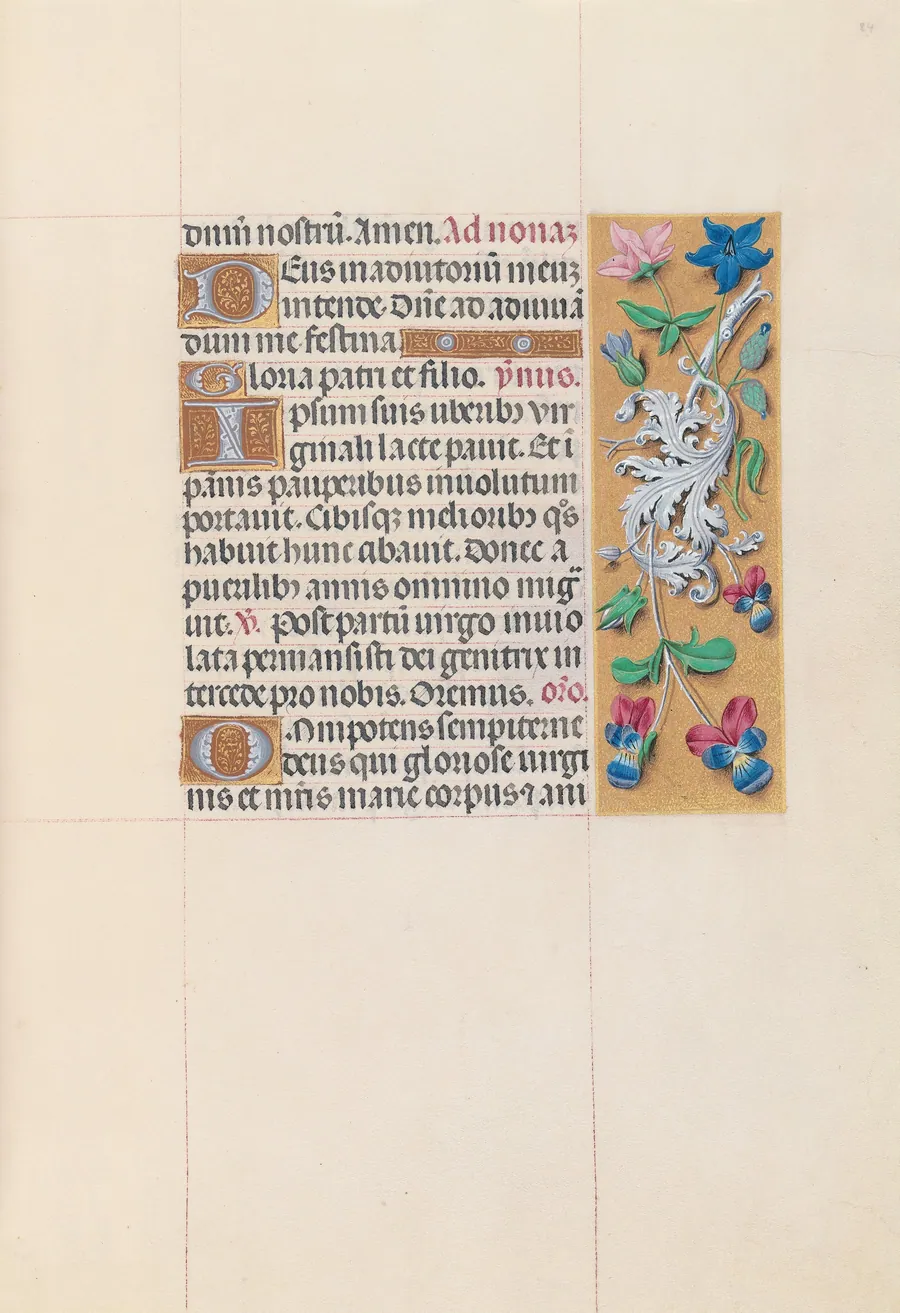 24
dium nostrū. Amen. Ad nonaʒ
Deus in adiutoriū meuʒ
intende. Dn̄e ad adiuuā
dum me festina.
Gloria patri et filio. ym̄us.
Ipsum suis uberibꝫ vir
ginali lacte pauit. Et ī
pānis pauperibus inuolutum
portauit. Cibisqꝫ melioribꝫ qͦs
habuit hunc cibauit. Donec a
puerilibꝫ annis omnino mig
uit. ℣. Post partū uirgo inuio
lata permansisti dei genitrix in
tercede pro nobis. Oremus. or̄o.
Omnipotens sempiterne
deus qui gloriose uirgi
nis et mr̄is marie corpus ⁊ ani